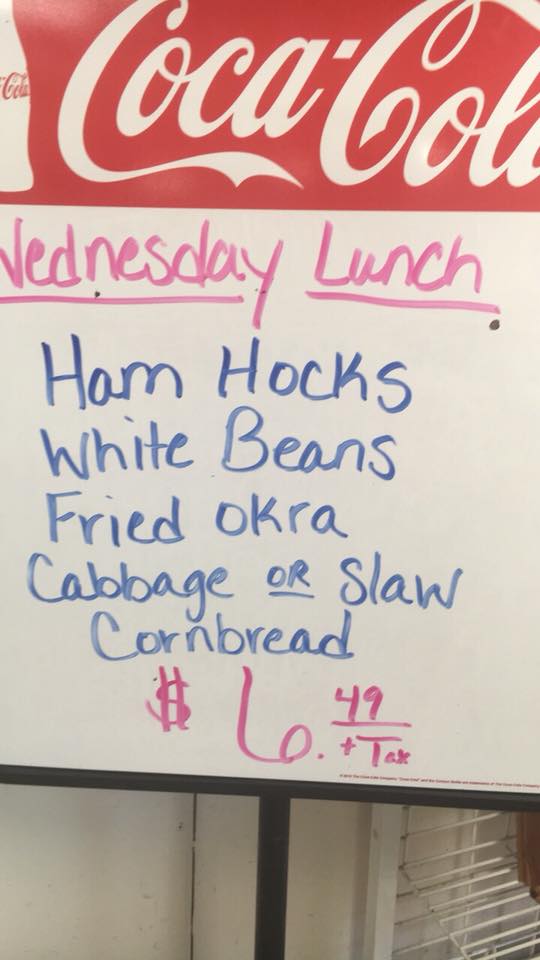 Coca-Col
Coca-Cola
Wednesday Lunch
Ham Hocks
White Beans
Fried okra
Cabbage OR Slaw
Cornbread
$ 6. 49
+ Tax